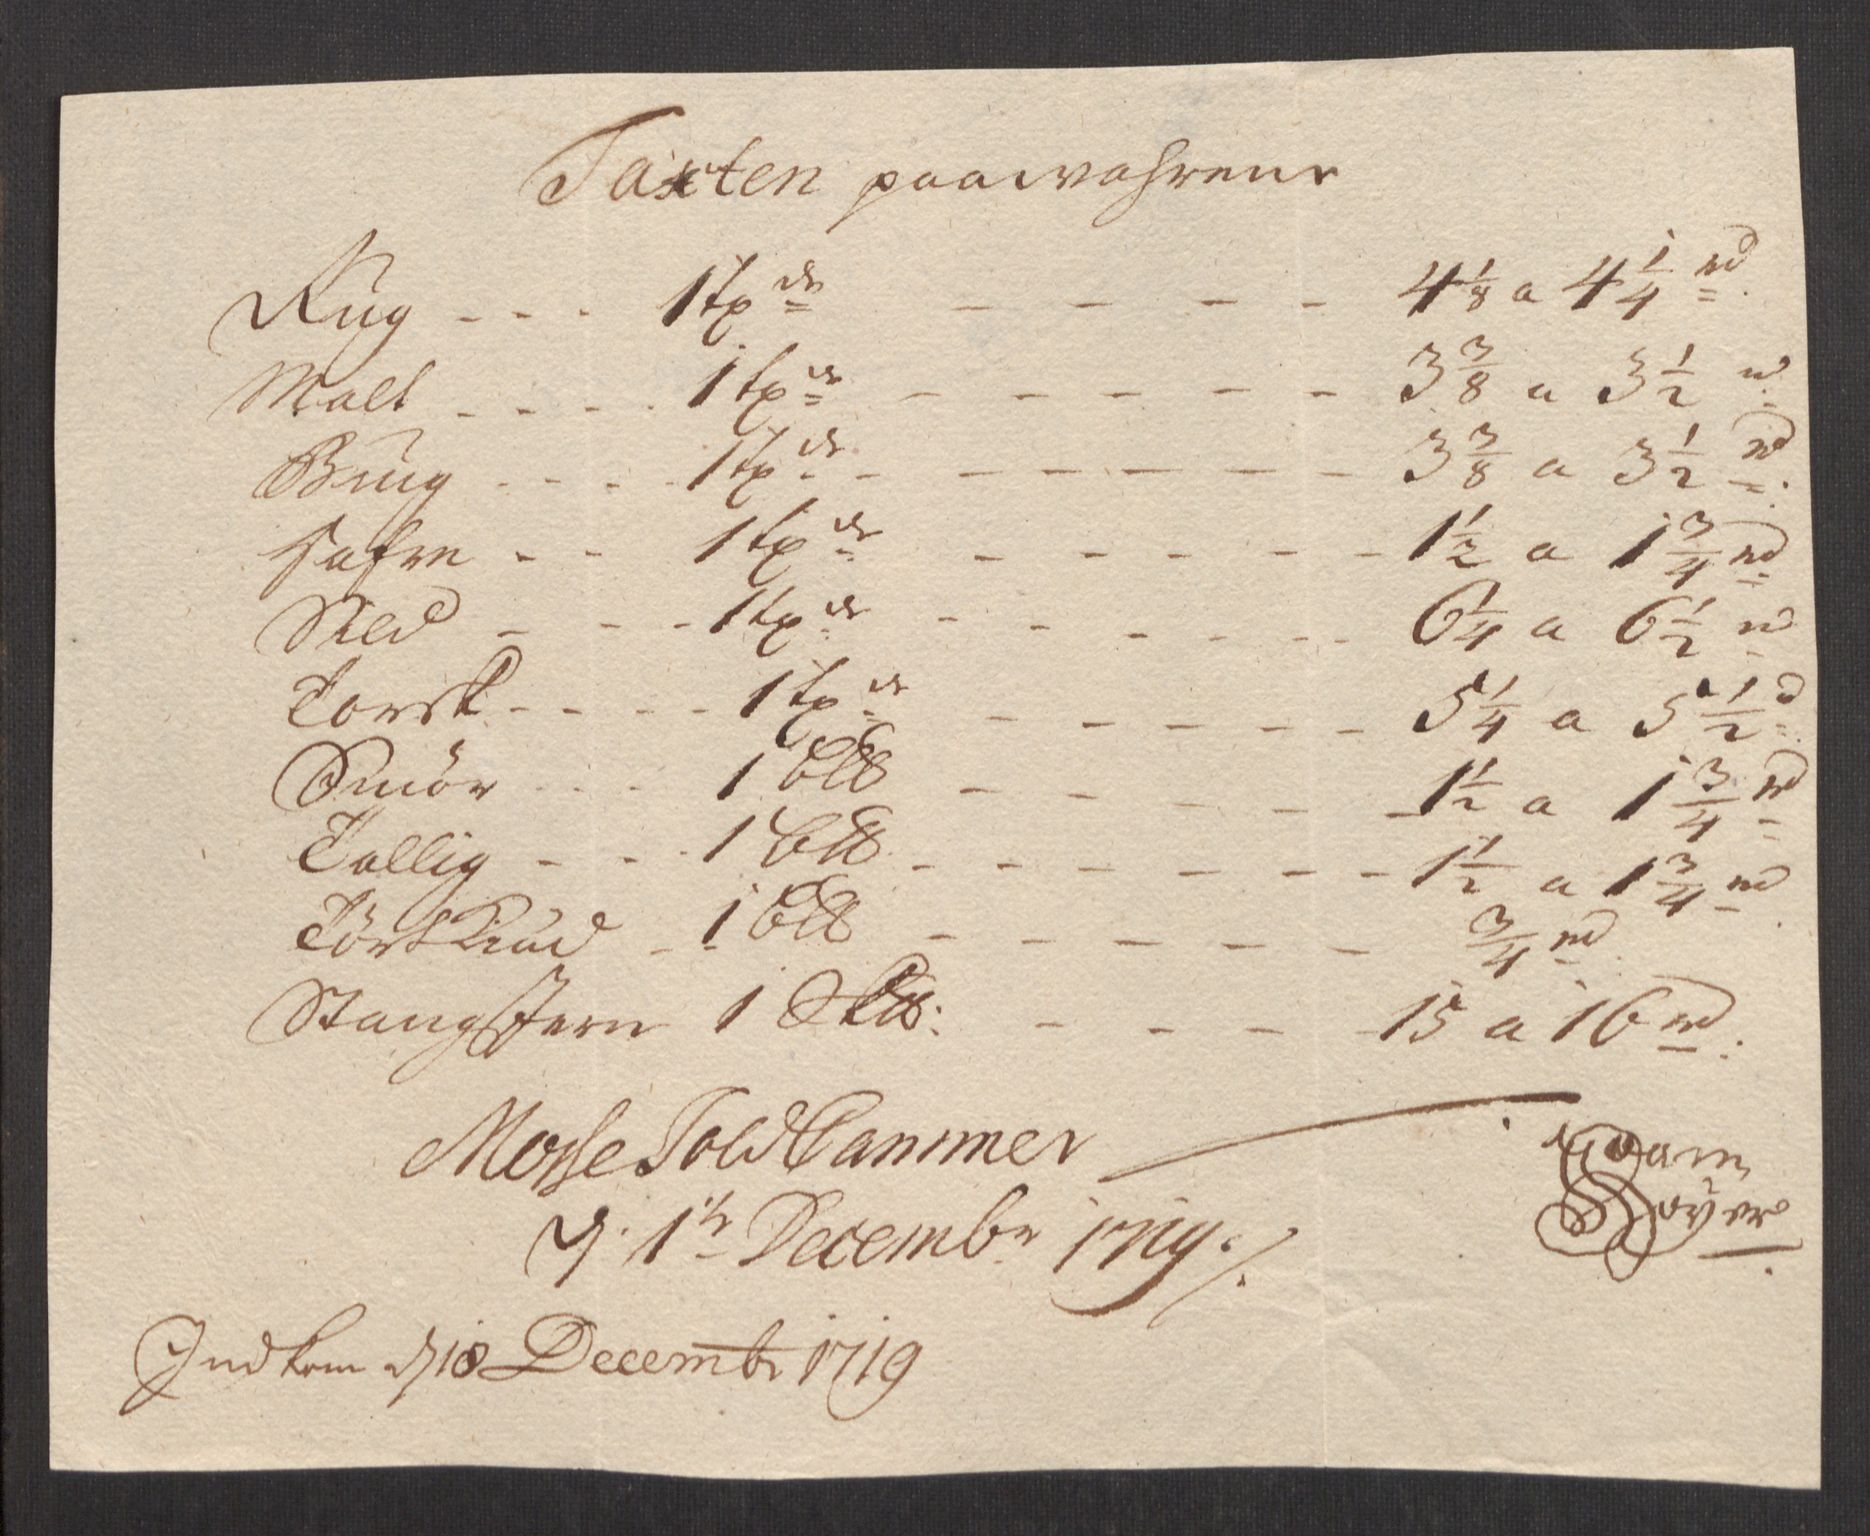 Taxten paa wahrene
Rug - - - 1 tøde - - - - 4 1/8 a 4 1/4 rd
Malt - - - - 1 tøde - - - - - 3 3/8 a 3 1/2 rd
Biug - - - - 1 tøde - - - - - - 3 3/8 a 3 1/2 rd
Hafre - - 1 tøde - - - - - 1 1/2 a 1 3/4 rd
Sild - - - 1 tøde - - - - - 6 1/4 a 6 1/2 rd
Torsk - - - - 1 tøde - - - - 5 1/4 a 5 1/2 rd
Smör - - - 1 - - - - 1 1/2 a 1 3/4 rd
Tallig - - - 1 - - - - - - 1 1/2 a 1 3/4 rd
Tört Kiud - 1 - - - - - 3/4 rd
Stang Jern 1 - - - 15 a 16 rd
Mosse Told Cammer
d. 1te Decembr 1719
Hoyer
Indkom d 18 Decembr 1719